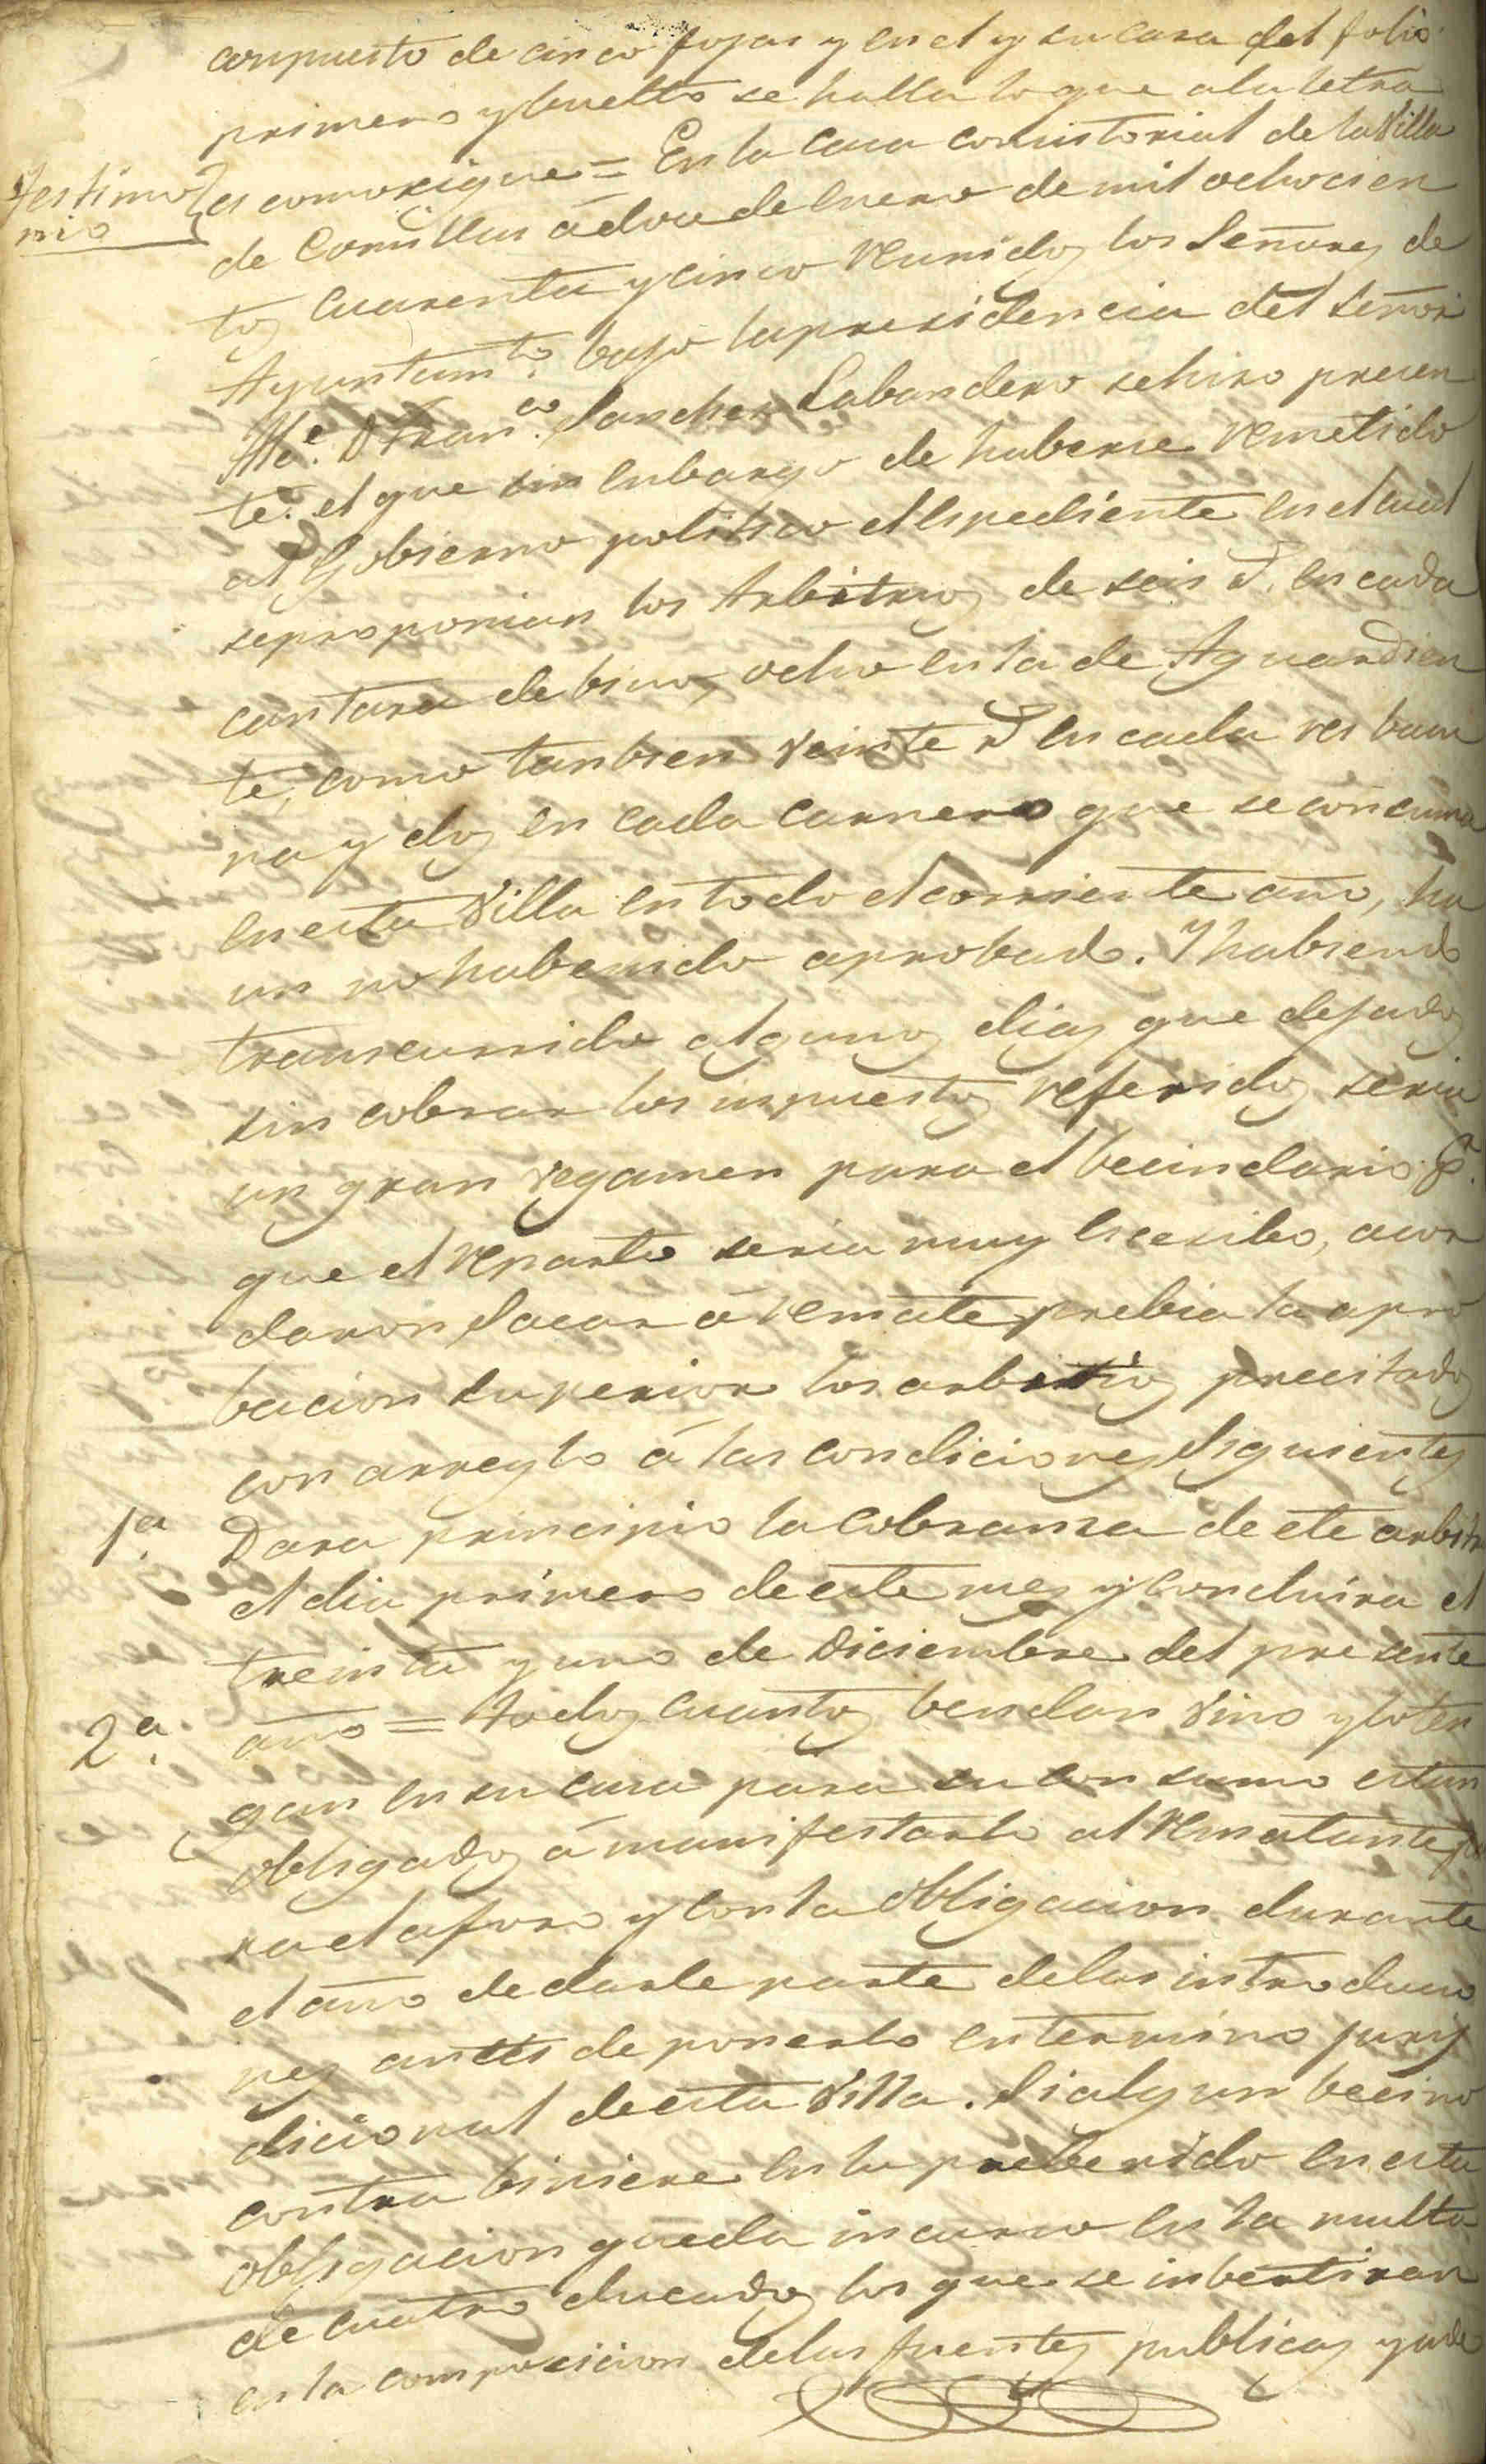 conpuesto de cinco fojas y en el y su cara del folio
primero y buelto se halla lo que a la letra
Testimo
nio
es como sigue = En la Casa consistorial de la Villa
de Comillas á doce de Enero de mil ochocien
tos Cuarenta y cinco reunidos los Señores de
Ayuntamto. bajo la presidencia del Señor
Alce. D Franco. Sanchez Labandero se hizo presen
te. el que sin enbargo de haberse remetido
al Gobierno politico el Espediente en el cual
se proponian los Arbitrios de seis rs. en cada
cantara de bino, ocho en la de Aguardien
te, como tanbien veinte rs en cada res bacu
na y dos en cada carnero que se concuma
en esta Villa en todo el corriente año, ha
un no ha benido aprobado. Y habiendo
transcurrido algunos dias que dejados
sin cobrar los inpuestos referidos seria
un gran regamen para el becindario P.
que el reparto seria muy escesibo, acor
daron Sacar á remate prebia la apro
bacion superior los arbitrios precitados
con arreglo á las condiciones Siguientes
1a. Dara principio la cobransa de ete arbitr
el dia primero de este mes y Concluira el
treinta y uno de Diciembre del presente
2a. año = todos cuantos bendan Vino y lo ten
gan en su casa para su consumo estan
obligados á manifestarlo al rematante pa
ra el aforo y con la obligacion durante
el año de darle parte de las introducio
nes antes de ponerlo en termino juris
dicional de esta Villa. Si algun becino
contra biniere en lo prebenido en esta
obligacion queda incurso en la multa
de cuatro ducados los que se inbertiran
en la composicion de las fuentes publicas y ade